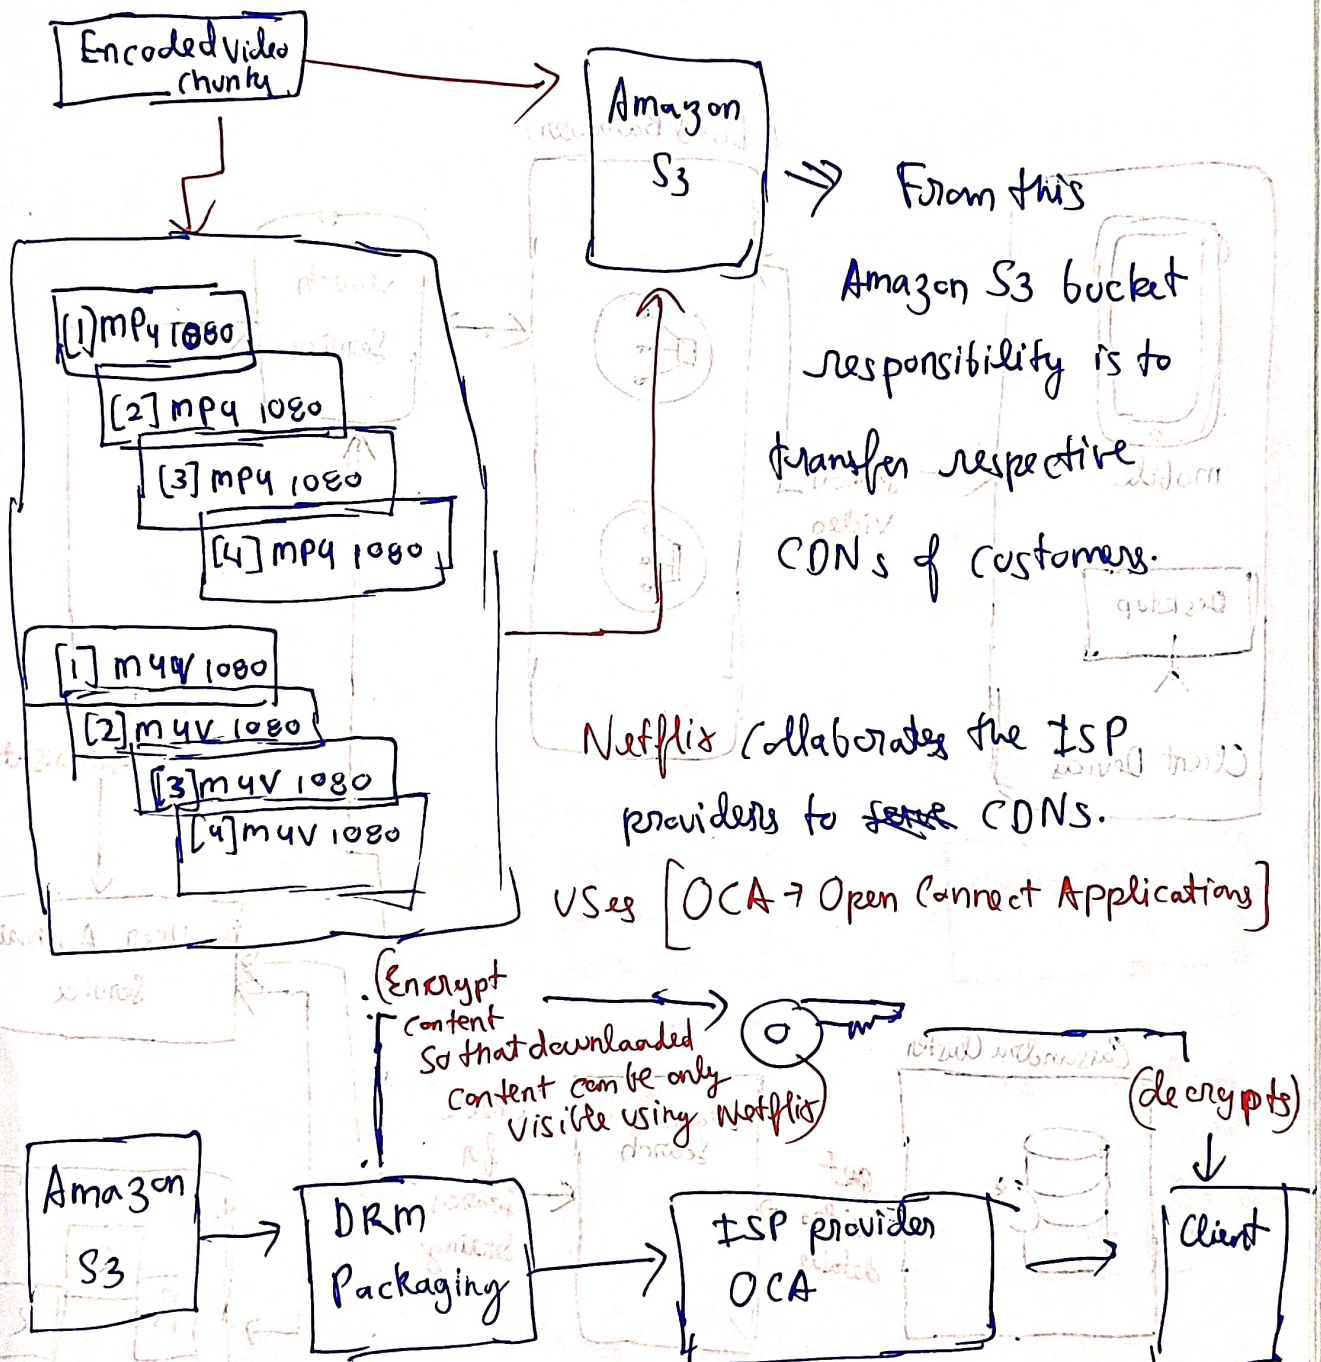 Encoded video
chunky
Amazon
S3
⇒ From this
Amazon S3 bucket
responsibility is to
transfer respective
CDNs of customers.
[1] mp4 1080
[2] mp4 1080
[3] mp4 1080
[4] mp4 1080
[1] m4v 1080
[2] m4v 1080
[3] m4v 1080
[4] m4v 1080
Netflix Collaborates the ISP
providers to CDNs.
Uses [OCA → Open Connect Applications]
(Encrypt
content
so that downloaded
content can be only
visible using Netflix)
(decrypts)
Amazon
S3
DRM
Packaging
ISP provider
OCA
Client